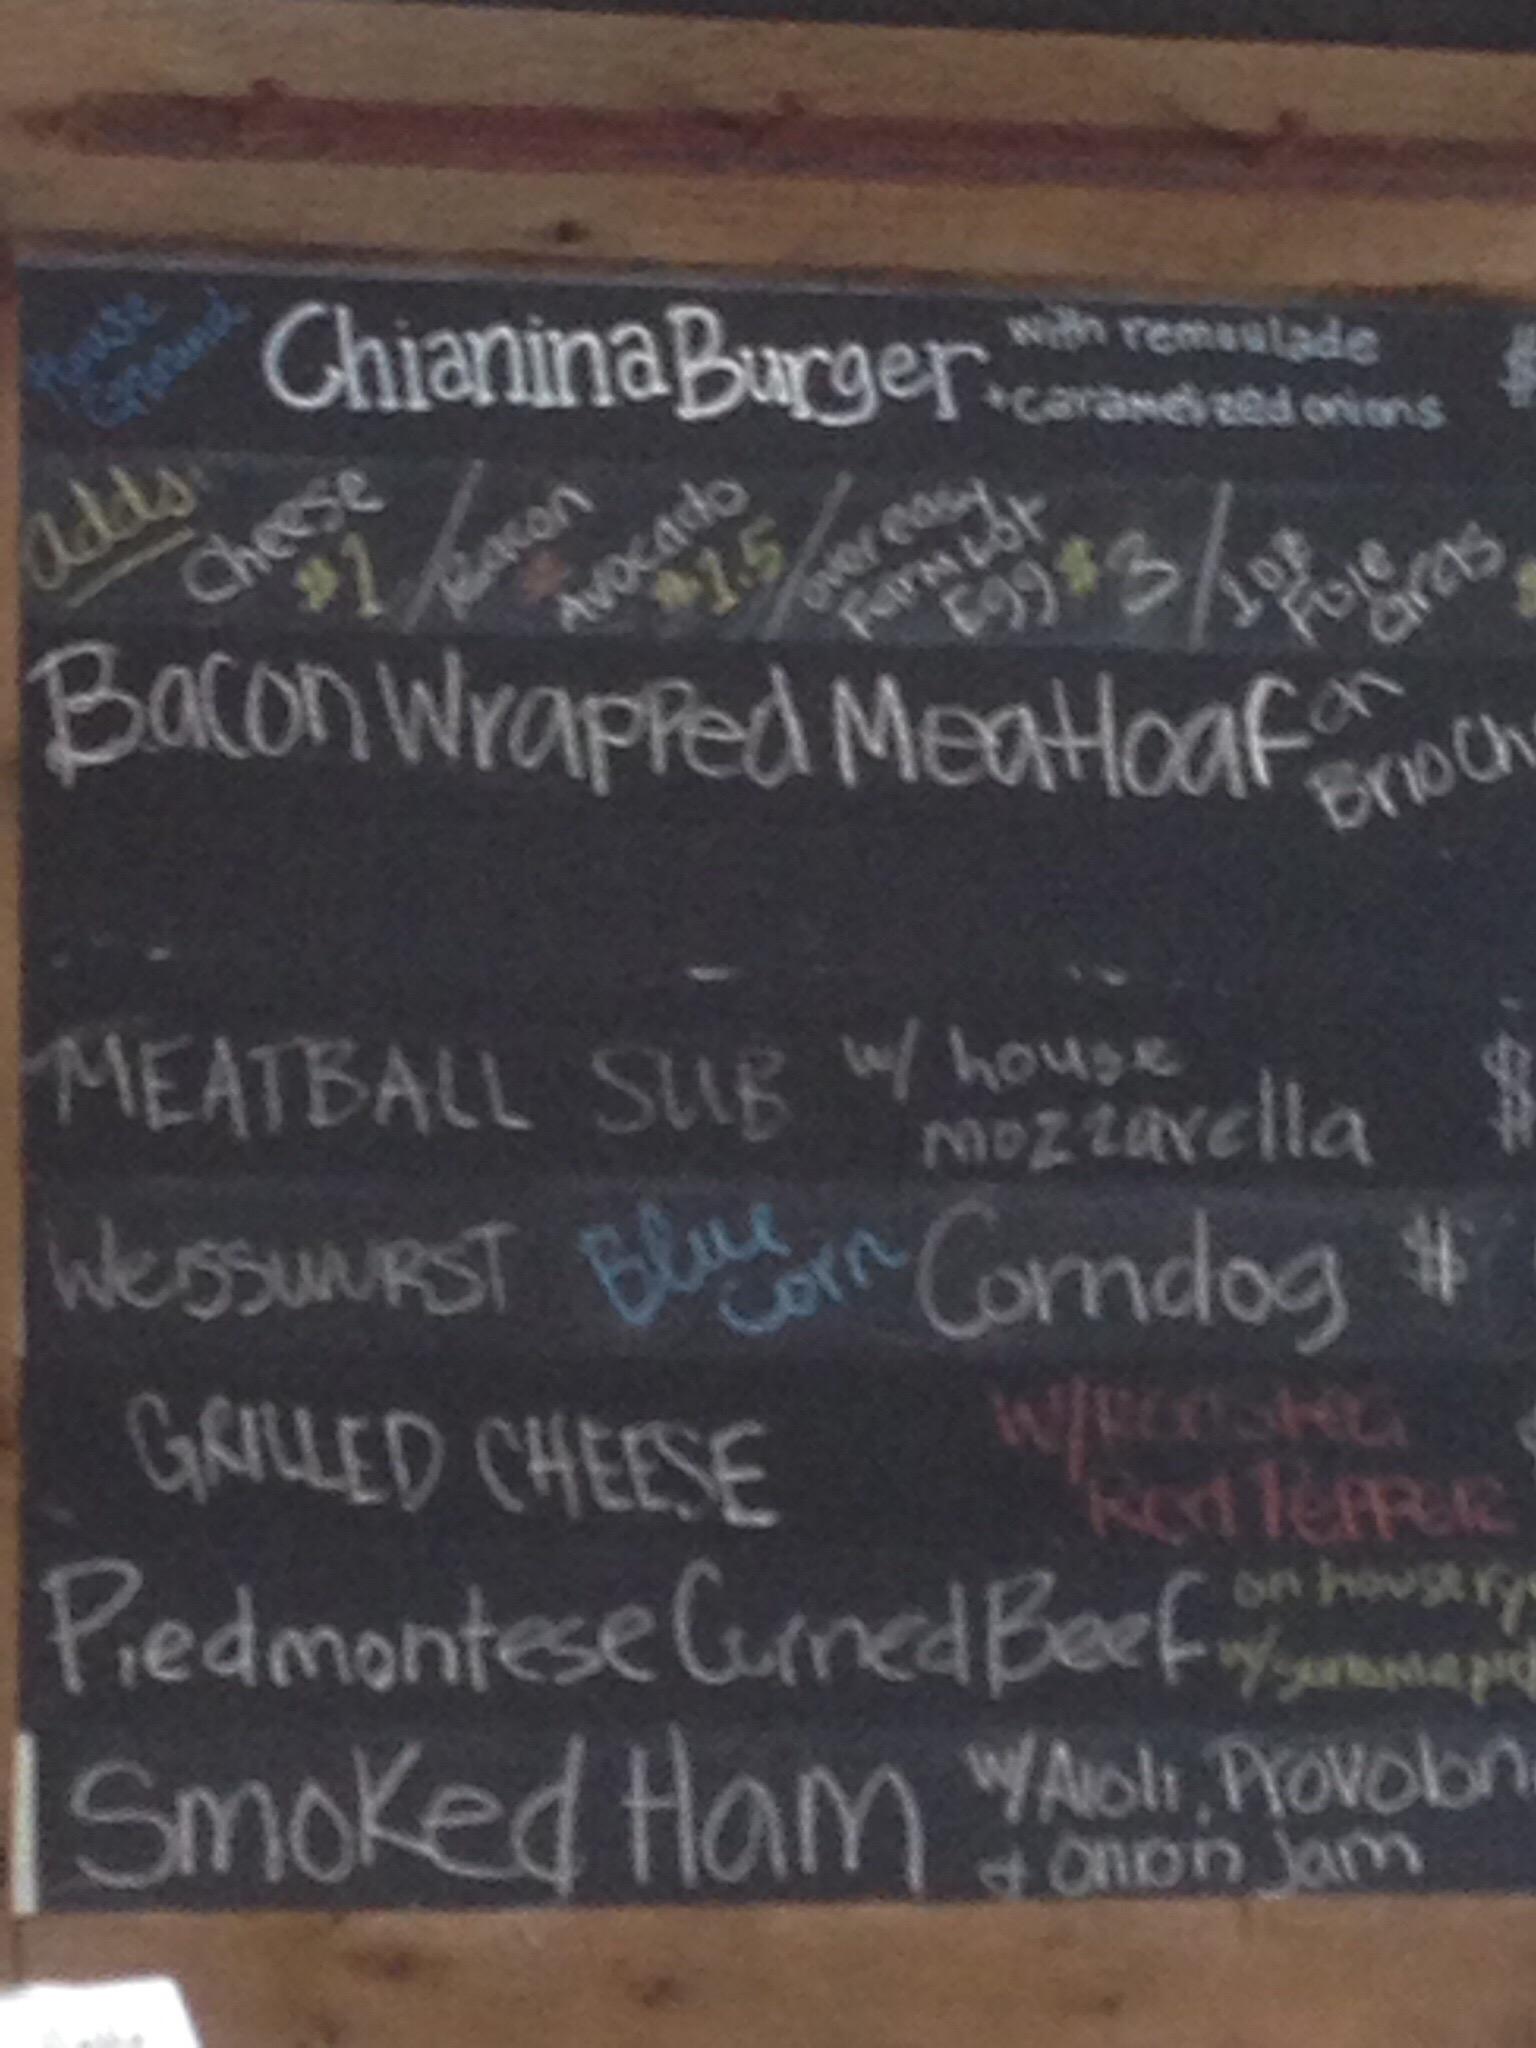 House Ground
Chianina Burger with remoulade
+ caramelized onions $
adds Cheese $1 / Bacon Avocado $1.5 / over easy Farm Lot Egg $3 / 1oz Foie Gras $
Bacon Wrapped Meatloaf on Brioch
MEATBALL SUB w/ house
mozzarella $
WEISSWURST Blue Corn Corndog $
GRILLED CHEESE w/ ROASTED
RED PEPPER
Piedmontese Curned Beef on house ry
w/
Smoked Ham w/ Aioli, Provolon
+ onion jam